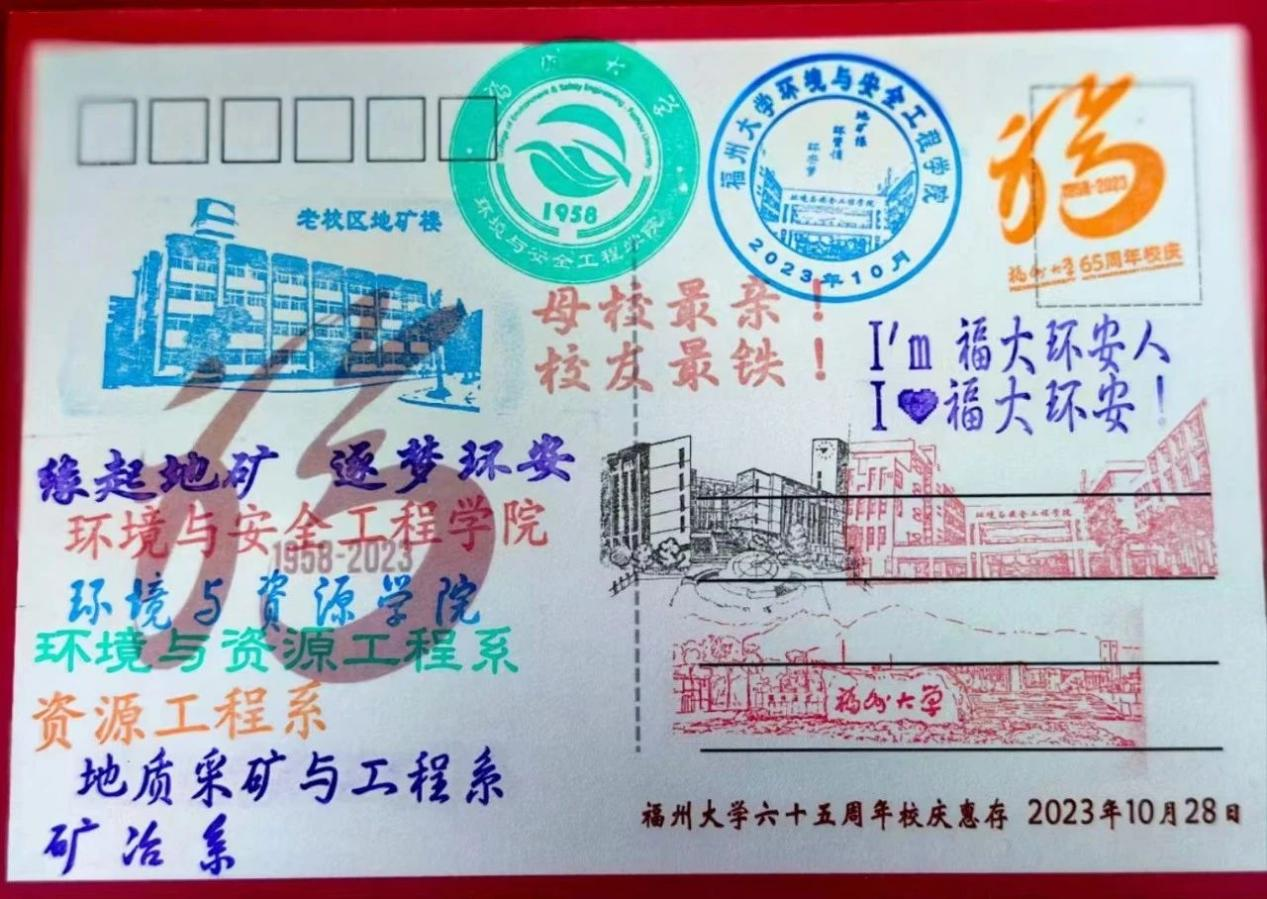 福州大学
College of Environment & Safety Engineering, Fuzhou University
1958
环境与安全工程学院
福州大学环境与安全工程学院
地矿缘
环资情
环安梦
环境与安全工程学院
2023年10月
福
1958-2023
福州大学65周年校庆
老校区地矿楼
母校最亲！
校友最铁！
I'm 福大环安人
I❤福大环安！
福
1958-2023
缘起地矿 逐梦环安
环境与安全工程学院
环境与资源学院
环境与资源工程系
资源工程系
地质采矿与工程系
矿冶系
环境与安全工程学院
福州大学
福州大学六十五周年校庆惠存 2023年10月28日